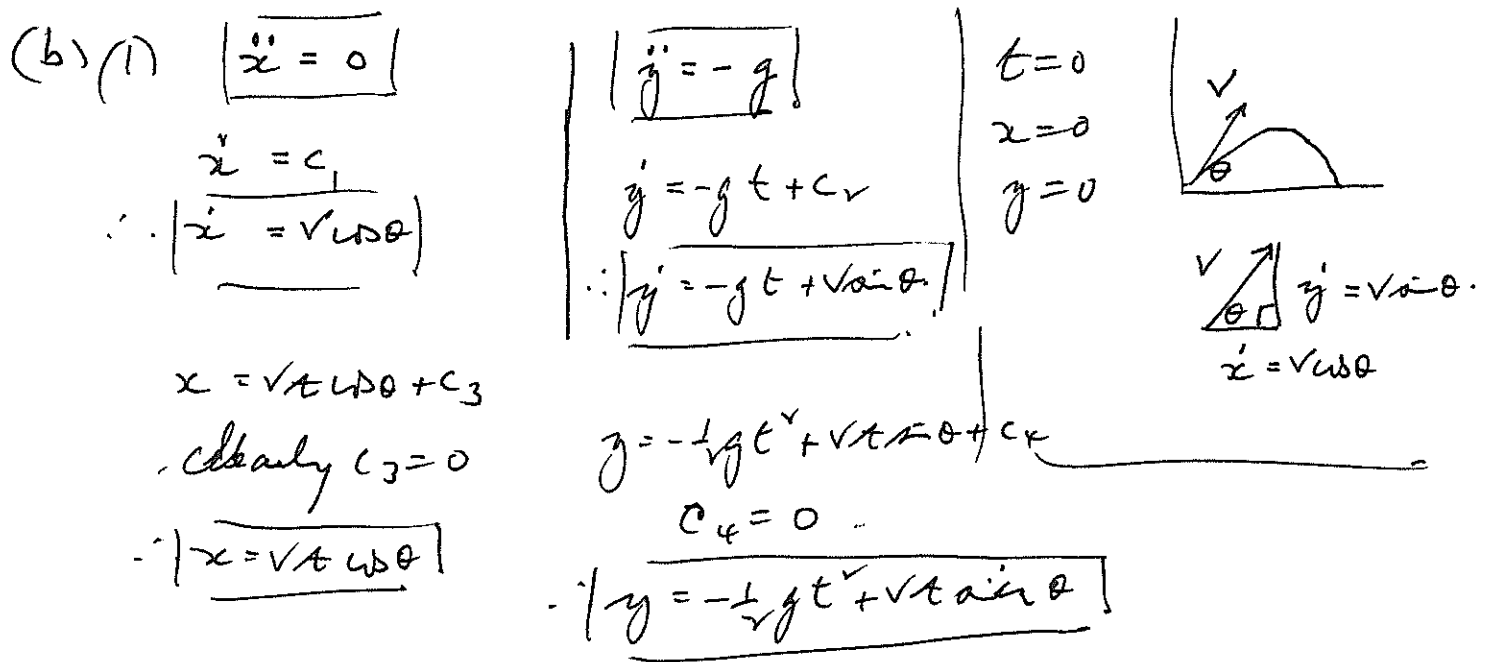 (b) (i) ẍ = 0
ẋ = c₁
∴ ẋ = V cos θ
x = Vt cos θ + c₃
. Clearly c₃ = 0
∴ x = Vt cos θ
ÿ = -g
ẏ = -gt + c₂
∴ ẏ = -gt + V sin θ.
y = -½gt² + Vt sin θ + c₄
c₄ = 0
∴ y = -½gt² + Vt sin θ
t = 0
x = 0
y = 0
V
θ
V
θ
ẏ = V sin θ.
ẋ = V cos θ